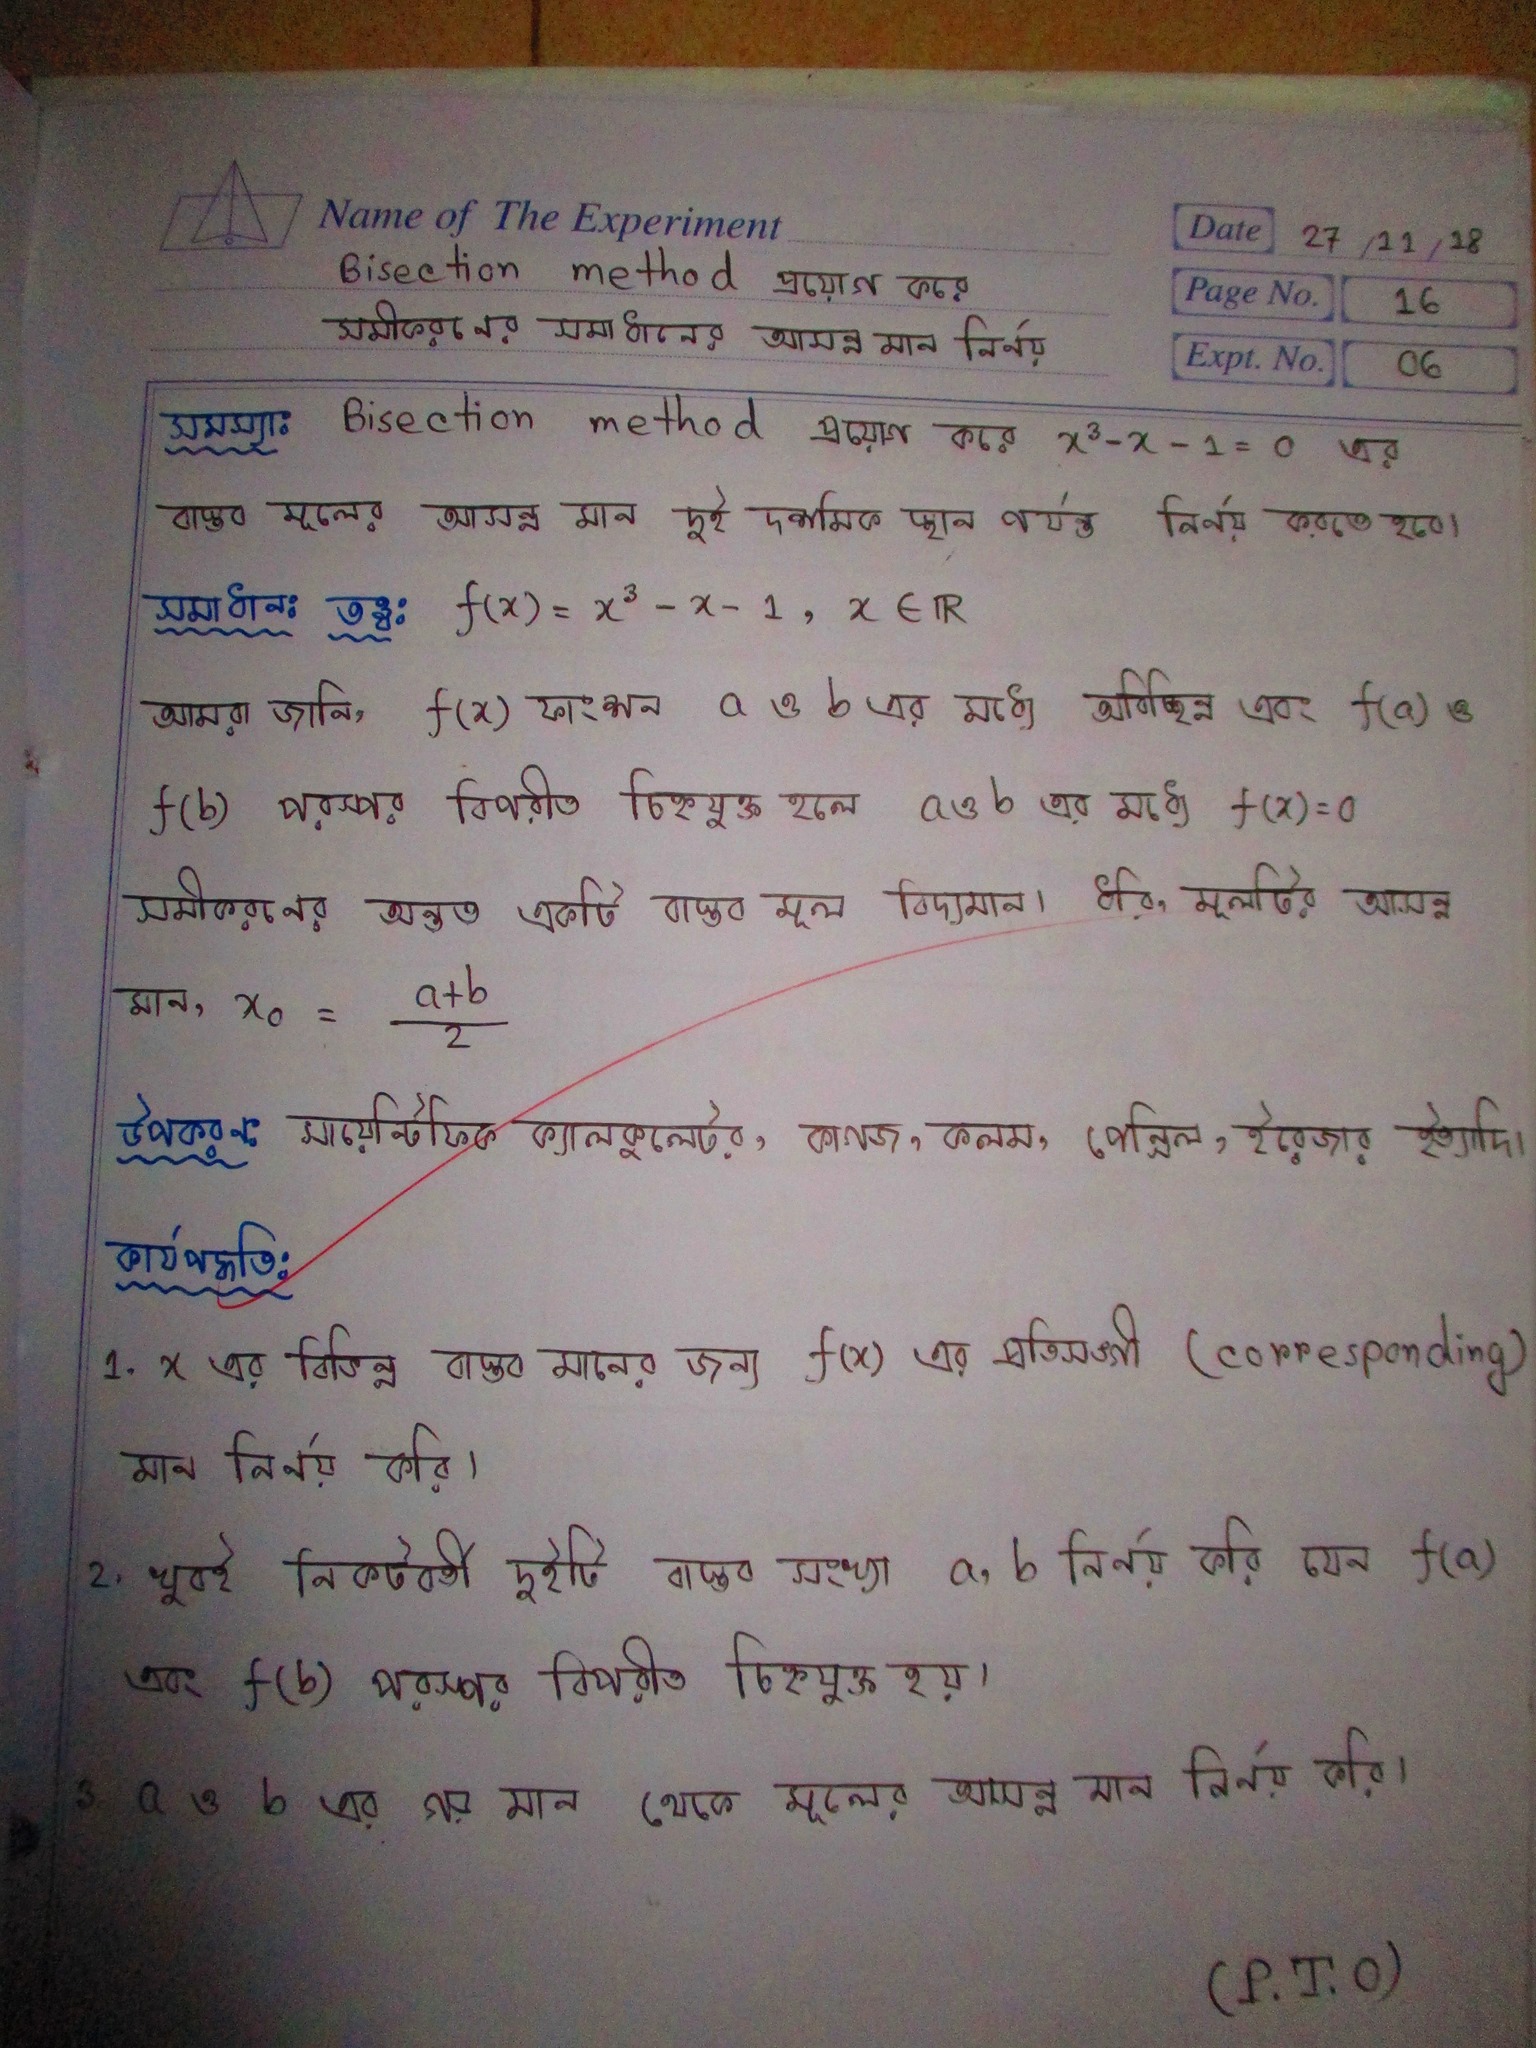 Name of The Experiment
Date 27/11/18
Bisection method প্রয়োগ করে
Page No. 16
সমীকরনের সমাধানের আসন্ন মান নির্নয়
Expt. No. 06
সমস্যাঃ Bisection method প্রয়োগ করে x³-x-1=0 এর
বাস্তব মূলের আসন্ন মান দুই দশমিক স্থান পর্যন্ত নির্নয় করতে হবে।
সমাধানঃ তত্ত্বঃ f(x) = x³ - x - 1, x ∈ ℝ
আমরা জানি, f(x) ফাংশন a ও b এর মধ্যে অবিচ্ছিন্ন এবং f(a) ও
f(b) পরস্পর বিপরীত চিহ্নযুক্ত হলে a ও b এর মধ্যে f(x)=0
সমীকরনের অন্তত একটি বাস্তব মূল বিদ্যমান। ধরি, মূলটির আসন্ন
মান, x₀ = (a+b)/2
উপকরনঃ সায়েন্টিফিক ক্যালকুলেটর, কাগজ, কলম, পেন্সিল, ইরেজার ইত্যাদি।
কার্যপদ্ধতিঃ
1. x এর বিভিন্ন বাস্তব মানের জন্য f(x) এর প্রতিসঙ্গী (corresponding)
মান নির্নয় করি।
2. খুবই নিকটবর্তী দুইটি বাস্তব সংখ্যা a, b নির্নয় করি যেন f(a)
এবং f(b) পরস্পর বিপরীত চিহ্নযুক্ত হয়।
3 a ও b এর গড় মান থেকে মূলের আসন্ন মান নির্নয় করি।
(P.T.O)